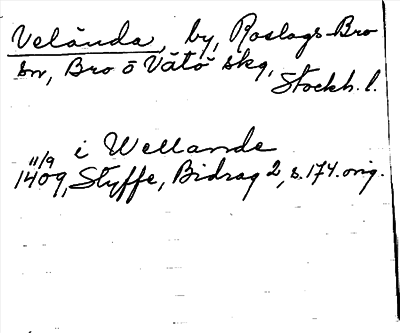 Velända, by, Roslags-Bro
sn, Bro o Vätö skg,
Stockh. l.
i Wellande
11/9
1409, Styffe, Bidrag 2, s. 174. orig.